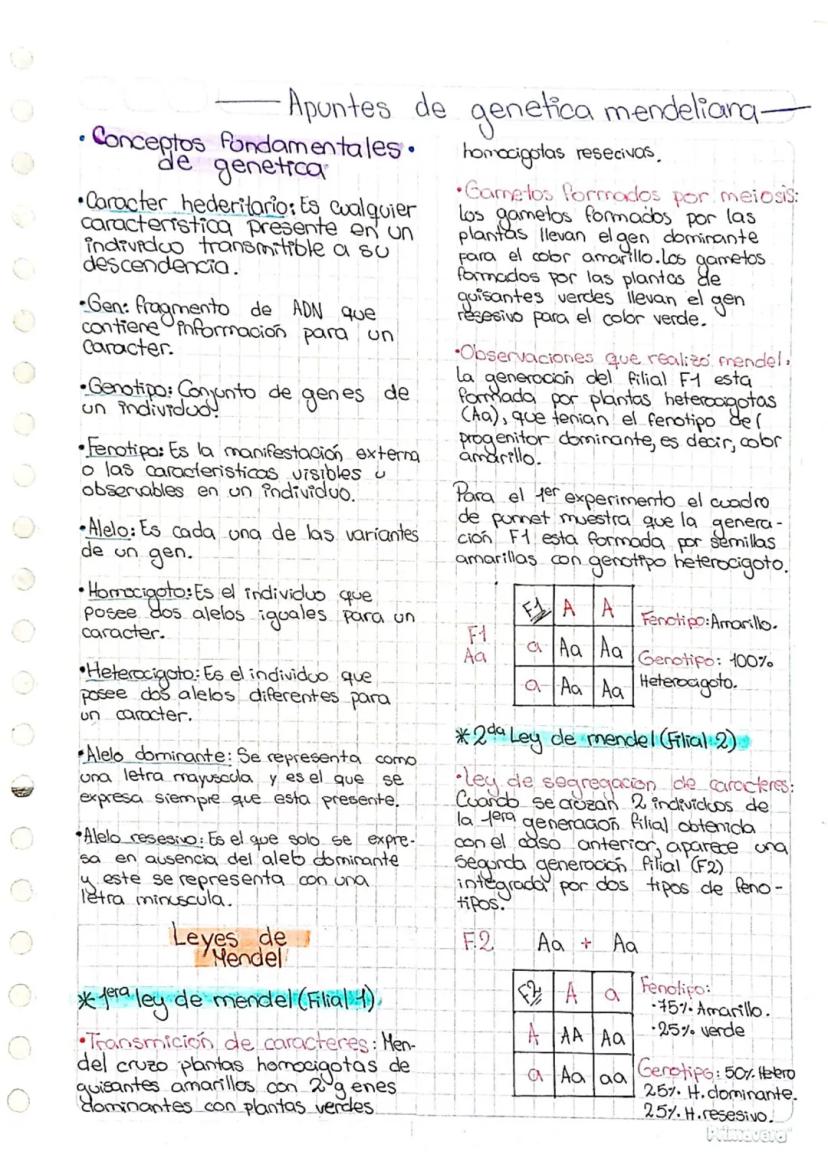 Apuntes de genetica mendeliana
• Conceptos fundamentales •
de genetica
• Caracter hederitario: Es cualquier
caracteristica presente en un
individuo transmitible a su
descendencia.
• Gen: fragmento de ADN que
contiene información para un
caracter.
• Genotipo: Conjunto de genes de
un individuo.
• Fenotipo: Es la manifestación externa
o las caracteristicas visibles u
observables en un individuo.
• Alelo: Es cada una de las variantes
de un gen.
• Homocigoto: Es el individuo que
posee dos alelos iguales para un
caracter.
• Heterocigoto: Es el individuo que
posee dos alelos diferentes para
un caracter.
• Alelo dominante: Se representa como
una letra mayuscula y es el que se
expresa siempre que esta presente.
• Alelo resesivo: Es el que solo se expre-
sa en ausencia del alelo dominante
y este se representa con una
letra minuscula.
Leyes de
Mendel
* 1era ley de mendel (Filial 1)
• Transmición de caracteres: Men-
del cruzo plantas homocigotas de
guisantes amarillos con 2 genes
dominantes con plantas verdes
homocigotas resecivas.
• Gametos formados por meiosis:
Los gametos formados por las
plantas llevan el gen dominante
para el color amarillo. Los gametos
formados por las plantas de
guisantes verdes llevan el gen
resesivo para el color verde.
• Observaciones que realizó mendel.
La generación del filial F1 esta
formada por plantas heterocigotas
(Aa), que tenian el fenotipo del
progenitor dominante, es decir, color
amarillo.
Para el 1er experimento el cuadro
de punnet muestra que la genera-
ción F1 esta formada por semillas
amarillas con genotipo heterocigoto.
F1
Aa
F1 A A
a Aa Aa
a Aa Aa
Fenotipo: Amarillo.
Genotipo: 100%
Heterocigoto.
* 2da Ley de mendel (Filial 2)
• Ley de segregacion de caracteres:
Cuando se cruzan 2 individuos de
la 1era generación filial obtenida
con el caso anterior, aparece una
segunda generación filial (F2)
integrada por dos tipos de feno-
tipos.
F.2 Aa + Aa
F2 A a
A AA Aa
a Aa aa
Fenotipo:
• 75% Amarillo.
• 25% verde
Genotipo: 50% Hetero
25% H. dominante.
25% H. resesivo.
Primavera